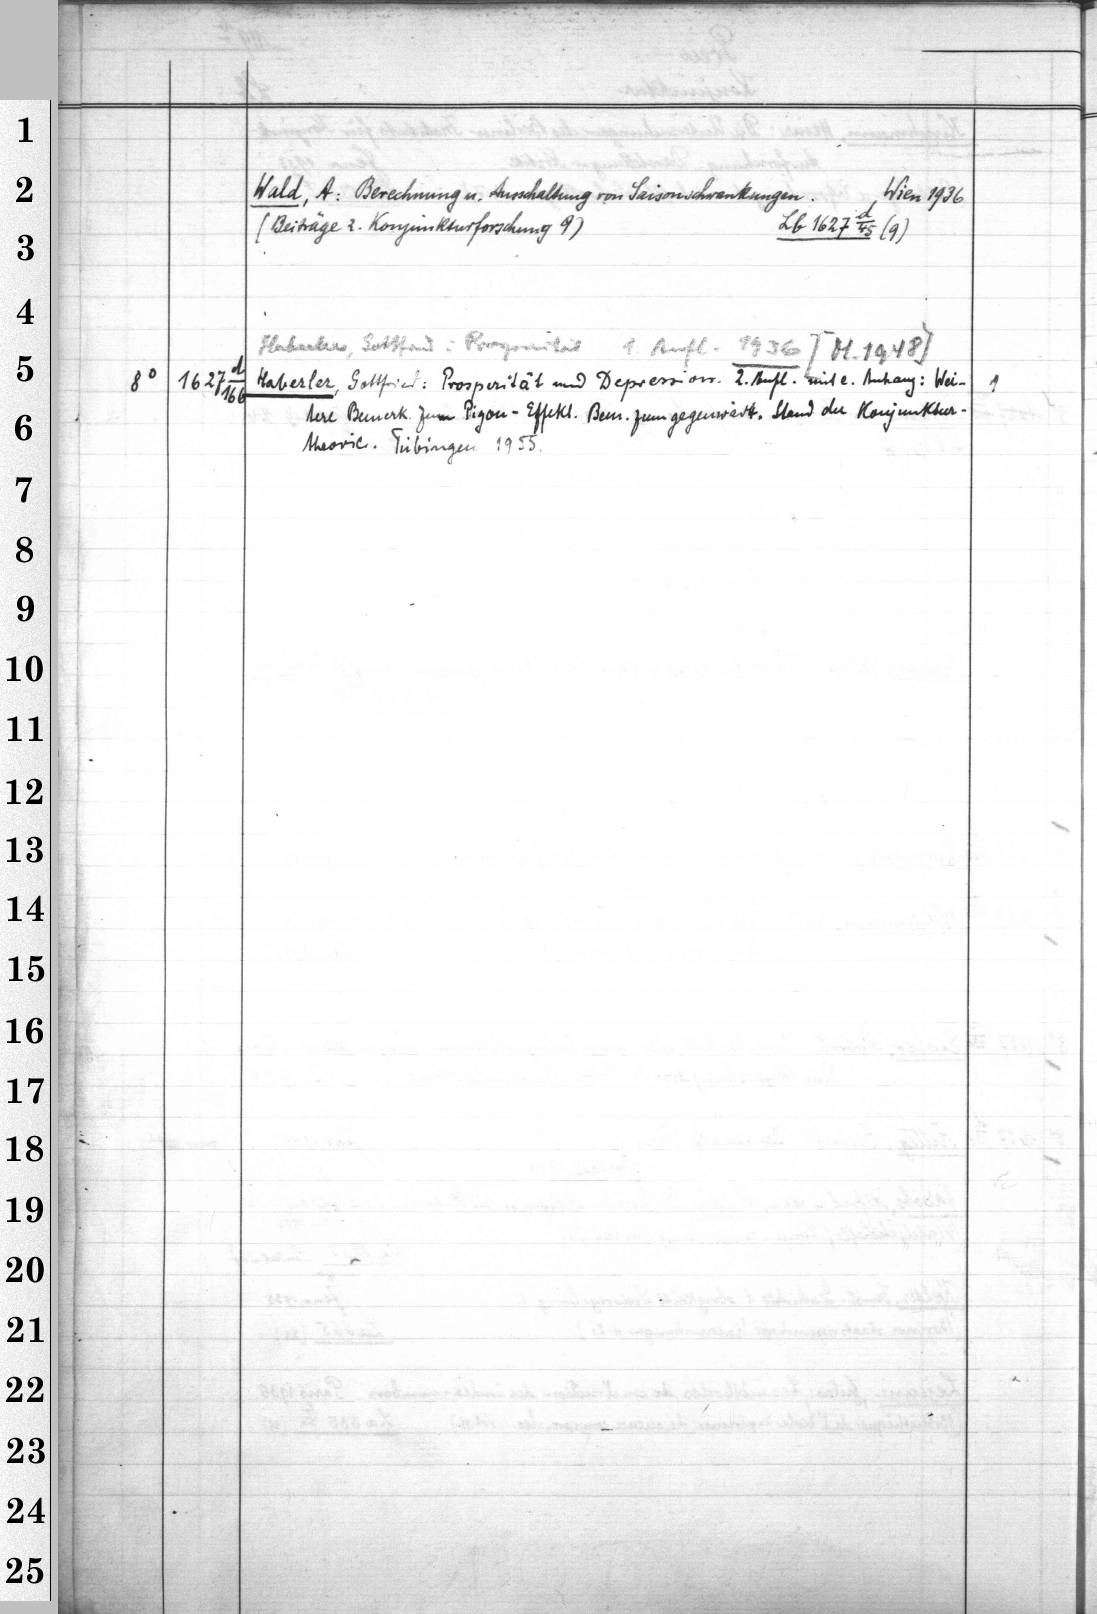 1
2
Wald, A: Berechnung u. Ausschaltung von Saisonschwankungen. Wien 1936
(Beiträge z. Konjunkturforschung 9) Lb 1627 d/45 (9)
3
4
Haberler, Gottfried: Prosperität 1. Aufl. 1936 [M. 1948]
5
8° 1627 d/166 Haberler, Gottfried: Prosperität und Depression. 2. Aufl. mit e. Anhang: Wei- 1
6
tere Bemerk. zum Pigou-Effekt. Bem. zum gegenwärt. Stand der Konjunktur-
theorie. Tübingen 1955.
7
8
9
10
11
12
13
14
15
16
17
18
19
20
21
22
23
24
25